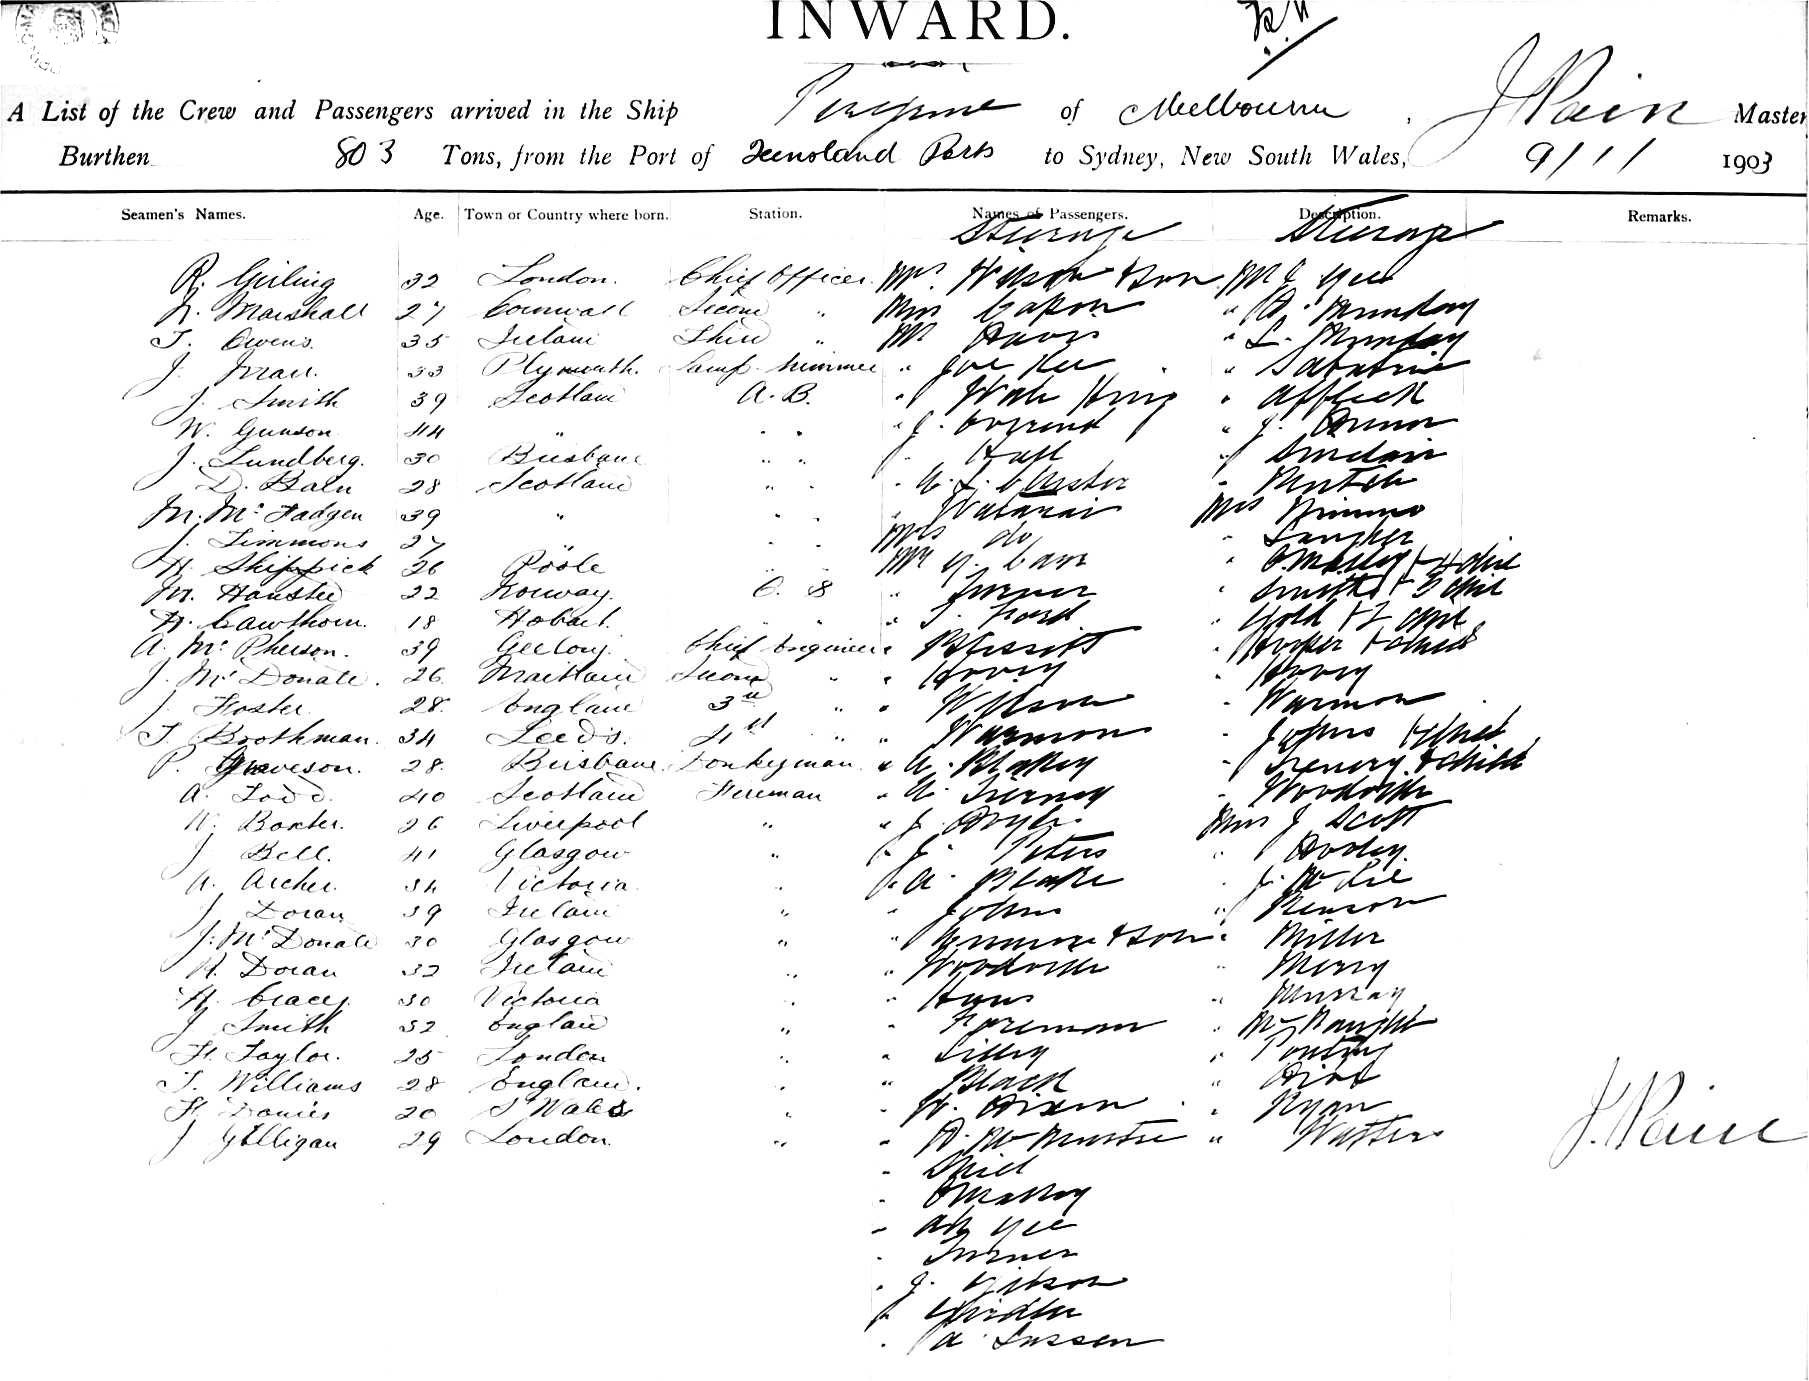 INWARD.
A List of the Crew and Passengers arrived in the Ship Peregrine of Melbourne, J Pain Master
Burthen 803 Tons, from the Port of Queensland Ports to Sydney, New South Wales, 9/11 1903
Seamen's Names. Age. Town or Country where born. Station. Names of Passengers. Description. Remarks.
Steerage Steerage
R. Girling 32 London. Chief Officer Mrs. Wilson & Son Mr J Yee
N. Marshall 27 Cornwall Second " Miss Capon " A. Munday
T. Owens. 35 Ireland Third " Mr Davis " L. Munday
J. 33 Plymouth. Lamp Trimmer " Joe Kee "
J. Smith 39 Scotland A.B. " Wah Hing " Affleck
W. Gunson 44 " " " " J. Overend " J.
J. Lundberg. 30 Brisbane " " " Hall " Sinclair
D. Bain 28 Scotland " " "
M. McFadgen 39 " " " " Watanai Mrs Nimmo
J. Timmons 27 " " " Mrs do "
H. Shippick 26 Poole " " Mr G. Carr " O'Malley &
M. 22 Norway. O. S " Turner " Smith & 3 Chil
H. Cawthorn. 18 Hobart. " " " T. Ford " Gold & 2 Chil
A. McPherson. 39 Geelong Chief Engineer "
J. McDonald. 26 Maitland Second " " "
J. Foster 28 England 3rd " " Wilson " Warmon
T. Boothman. 34 Leeds. 4th " " Warmon " Johns & Child
P. Graveson. 28 Brisbane Donkeyman " A. Blakey " & Child
A. Todd. 40 Scotland Fireman " A. Tierney " Woodville
W. Baxter. 26 Liverpool " " J. Miss J Scott
J Bell. 41 Glasgow " " J. Peters "
A. Archer. 34 Victoria " " A. Blake " J.
J Doran 39 Ireland " " Johns " Benson
J. McDonald 30 Glasgow " " & Son " Miller
H. Doran 32 Ireland " " Woodville " Merry
H. Cracey 30 Victoria " " " Murray
J Smith 32 England " " Foreman " McNaught
H. Taylor. 25 London " " Lilley " Ponting
T. Williams 28 England. " " Black "
H. Davies 20 S Wales " " W. Dixon " Ryan
J Gilligan 29 London " " A. McMaster " Watters
J. Pain
"
" O'Malley
" Ah Yee
" Turner
" J. Gibson
"
" A